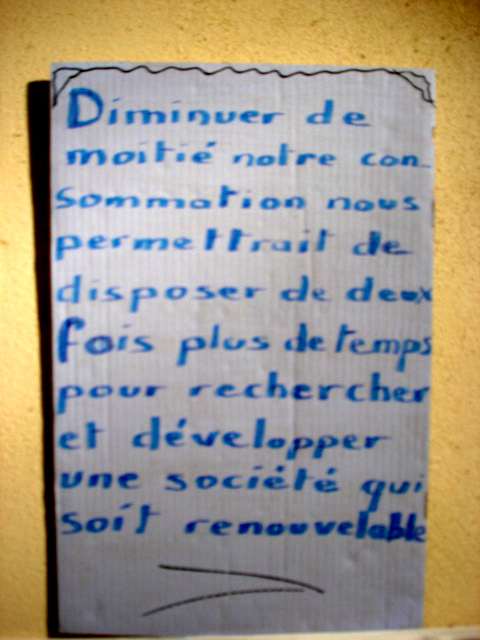 Diminuer de
moitié notre con-
sommation nous
permettrait de
disposer de deux
fois plus de temps
pour rechercher
et développer
une société qui
soit renouvelable